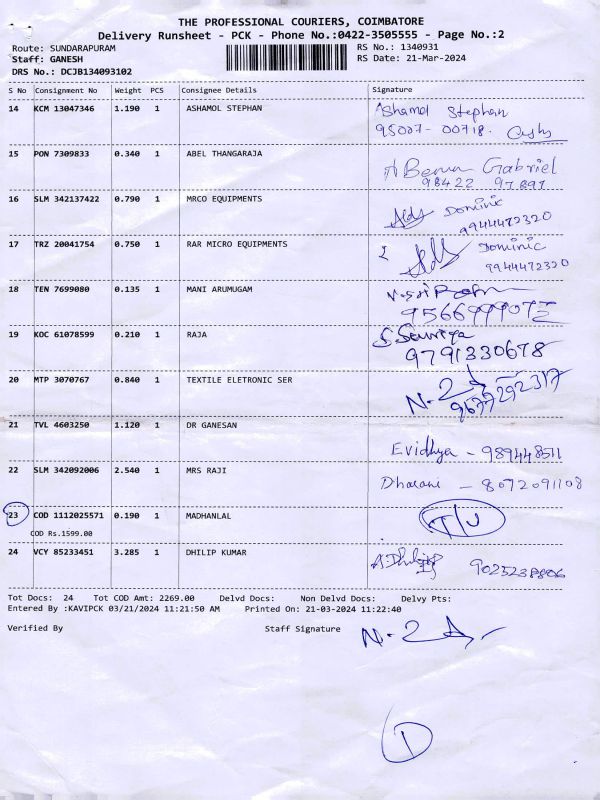 THE PROFESSIONAL COURIERS, COIMBATORE
Delivery Runsheet - PCK - Phone No.:0422-3505555 - Page No.:2
Route: SUNDARAPURAM RS No.: 1340931
Staff: GANESH RS Date: 21-Mar-2024
DRS No.: DCJB134093102
S No Consignment No Weight PCS Consignee Details Signature
14 KCM 13047346 1.190 1 ASHAMOL STEPHAN Ashamol Stephan
95007-00718.
15 PON 7309833 0.340 1 ABEL THANGARAJA Gabriel
98422 97897
16 SLM 342137422 0.790 1 MRCO EQUIPMENTS Dominic
9944472320
17 TRZ 20041754 0.750 1 RAR MICRO EQUIPMENTS Dominic
9944472320
18 TEN 7699080 0.135 1 MANI ARUMUGAM
19 KOC 61078599 0.210 1 RAJA
9791330678
20 MTP 3070767 0.840 1 TEXTILE ELETRONIC SER
9677292317
21 TVL 4603250 1.120 1 DR GANESAN Evidhya - 989448511
22 SLM 342092006 2.540 1 MRS RAJI Dharani - 8072091108
23 COD 1112025571 0.190 1 MADHANLAL
COD Rs.1599.00
24 VCY 85233451 3.285 1 DHILIP KUMAR 9025238806
Tot Docs: 24 Tot COD Amt: 2269.00 Delvd Docs: Non Delvd Docs: Delvy Pts:
Entered By :KAVIPCK 03/21/2024 11:21:50 AM Printed On: 21-03-2024 11:22:40
Verified By Staff Signature